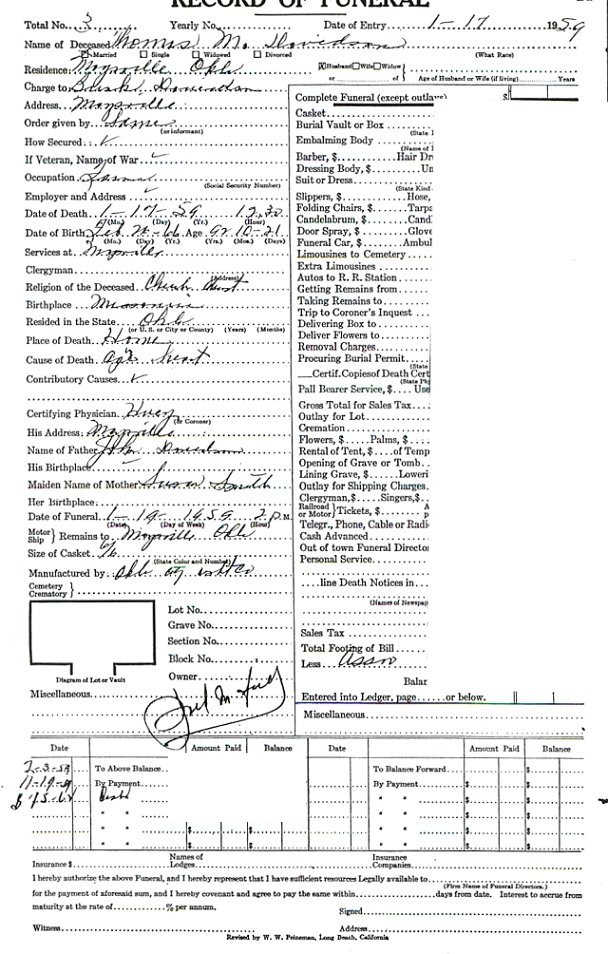 RECORD OF FUNERAL
Total No. 3 Yearly No. Date of Entry 1-17 1959
Name of Deceased Thomas M. Davidson
Married Single Widowed Divorced (What Race)
Residence: Maysville Okla Husband Wife Widow
or of Age of Husband or Wife (if living) Years
Charge to Davidson
Address Maysville
Order given by Same
(or informant)
How Secured ✓
If Veteran, Name of War ✓
Occupation Farmer
(Social Security Number)
Employer and Address ✓
Date of Death 1-17-59 12:30
(Mo.) (Day) (Yr.) (Hour)
Date of Birth Feb 26-66 Age 92 10-21
(Mo.) (Day) (Yr.) (Yrs.) (Mos.) (Days)
Services at Maysville
(Address)
Clergyman
Religion of the Deceased Church Christ
Birthplace Missouri
Resided in the State Okla
(or U. S. or City or County) (Years) (Months)
Place of Death Home
Cause of Death Age heart
Contributory Causes ✓
Certifying Physician Huey
(or Coroner)
His Address Maysville
Name of Father John Davidson
His Birthplace
Maiden Name of Mother Susan Smith
Her Birthplace
Date of Funeral 1-19-1959 2 P.M.
(Date) (Day of Week) (Hour)
Motor Ship } Remains to Maysville Okla
Size of Casket 6/6
(State Color and Number)
Manufactured by Okla City
Cemetery Crematory }
Lot No.
Grave No.
Section No.
Block No.
Owner
Diagram of Lot or Vault
Miscellaneous
Complete Funeral (except outlays) $
Casket
Burial Vault or Box
(State
Embalming Body
(Name of
Barber, $ Hair Dr
Dressing Body, $ Un
Suit or Dress
(State Kind
Slippers, $ Hose,
Folding Chairs, $ Tarpa
Candelabrum, $ Cand
Door Spray, $ Glove
Funeral Car, $ Ambul
Limousines to Cemetery
Extra Limousines
Autos to R. R. Station
Getting Remains from
Taking Remains to
Trip to Coroner's Inquest
Delivering Box to
Deliver Flowers to
Removal Charges
Procuring Burial Permit
(State
Certif. Copies of Death Cert
(State Ph
Pall Bearer Service, $ Use
Gross Total for Sales Tax
Outlay for Lot
Cremation
Flowers, $ Palms, $
Rental of Tent, $ of Temp
Opening of Grave or Tomb
Lining Grave, $ Loweri
Outlay for Shipping Charges
Clergyman, $ Singers, $
Railroad or Motor } Tickets, $
Telegr., Phone, Cable or Radi
Cash Advanced
Out of town Funeral Directo
Personal Service
line Death Notices in
(Names of Newspap
Sales Tax
Total Footing of Bill
Less Assn
Balan
Entered into Ledger, page or below.
Miscellaneous
Date Amount Paid Balance Date Amount Paid Balance
2-3-59 To Above Balance To Balance Forward $
11-19-59 By Payment By Payment $
" " " " $
" " " " $
" " $ $ " " $
" " $ $ " " $
Insurance $ Names of Lodges Insurance Companies
I hereby authorize the above Funeral, and I hereby represent that I have sufficient resources Legally available to
(Firm Name of Funeral Directors.)
for the payment of aforesaid sum, and I hereby covenant and agree to pay the same within days from date. Interest to accrue from
maturity at the rate of % per annum. Signed
Witness Address
Revised by W. W. Feineman, Long Beach, California